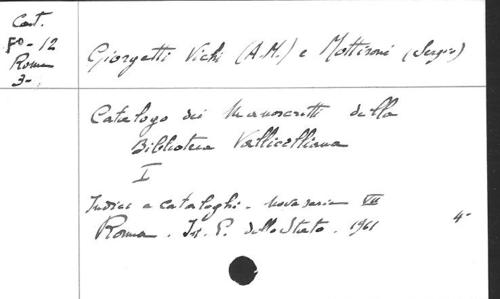 Cat.
Fº-12
Roma
3-
Giorgetti Vichi (A.M.) e Mottironi (Sergio)
Catalogo dei Manoscritti della
Biblioteca Vallicelliana
I
Indici e cataloghi - nova serie VII
Roma. Ist. P. dello Stato. 1961
4-